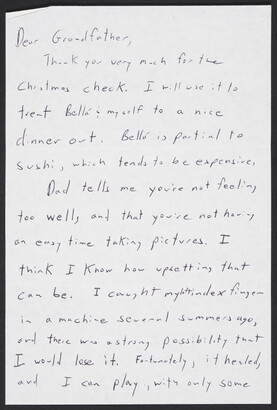 Dear Grandfather,
Thank you very much for the
Christmas check. I will use it to
treat Bella & myself to a nice
dinner out. Bella is partial to
sushi, which tends to be expensive.
Dad tells me you're not feeling
too well, and that you're not having
an easy time taking pictures. I
think I know how upsetting that
can be. I caught my left index finger
in a machine several summers ago,
and there was a strong possibility that
I would lose it. Fortunately, it healed,
and I can play, with only some